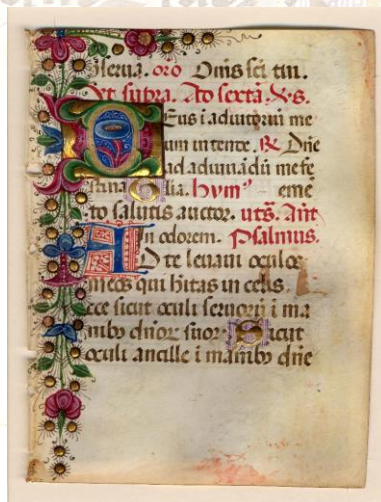 serua. oro Dnis sci tui.
Ut supra. Ad sextā. Vs.
Deus i adiutoriū me
um intende. R Dñe
ad adiuuādū me fe
stina Glia. hymꝰ emē
to salutis auctor. utš. Añt
In odorem. psalmus.
AD te leuaui oculos
meos qui hītas in celis.
Ecce sicut oculi seruorū i ma
nibꝰ dñor suor. Sicut
oculi ancille i manibꝰ dñe